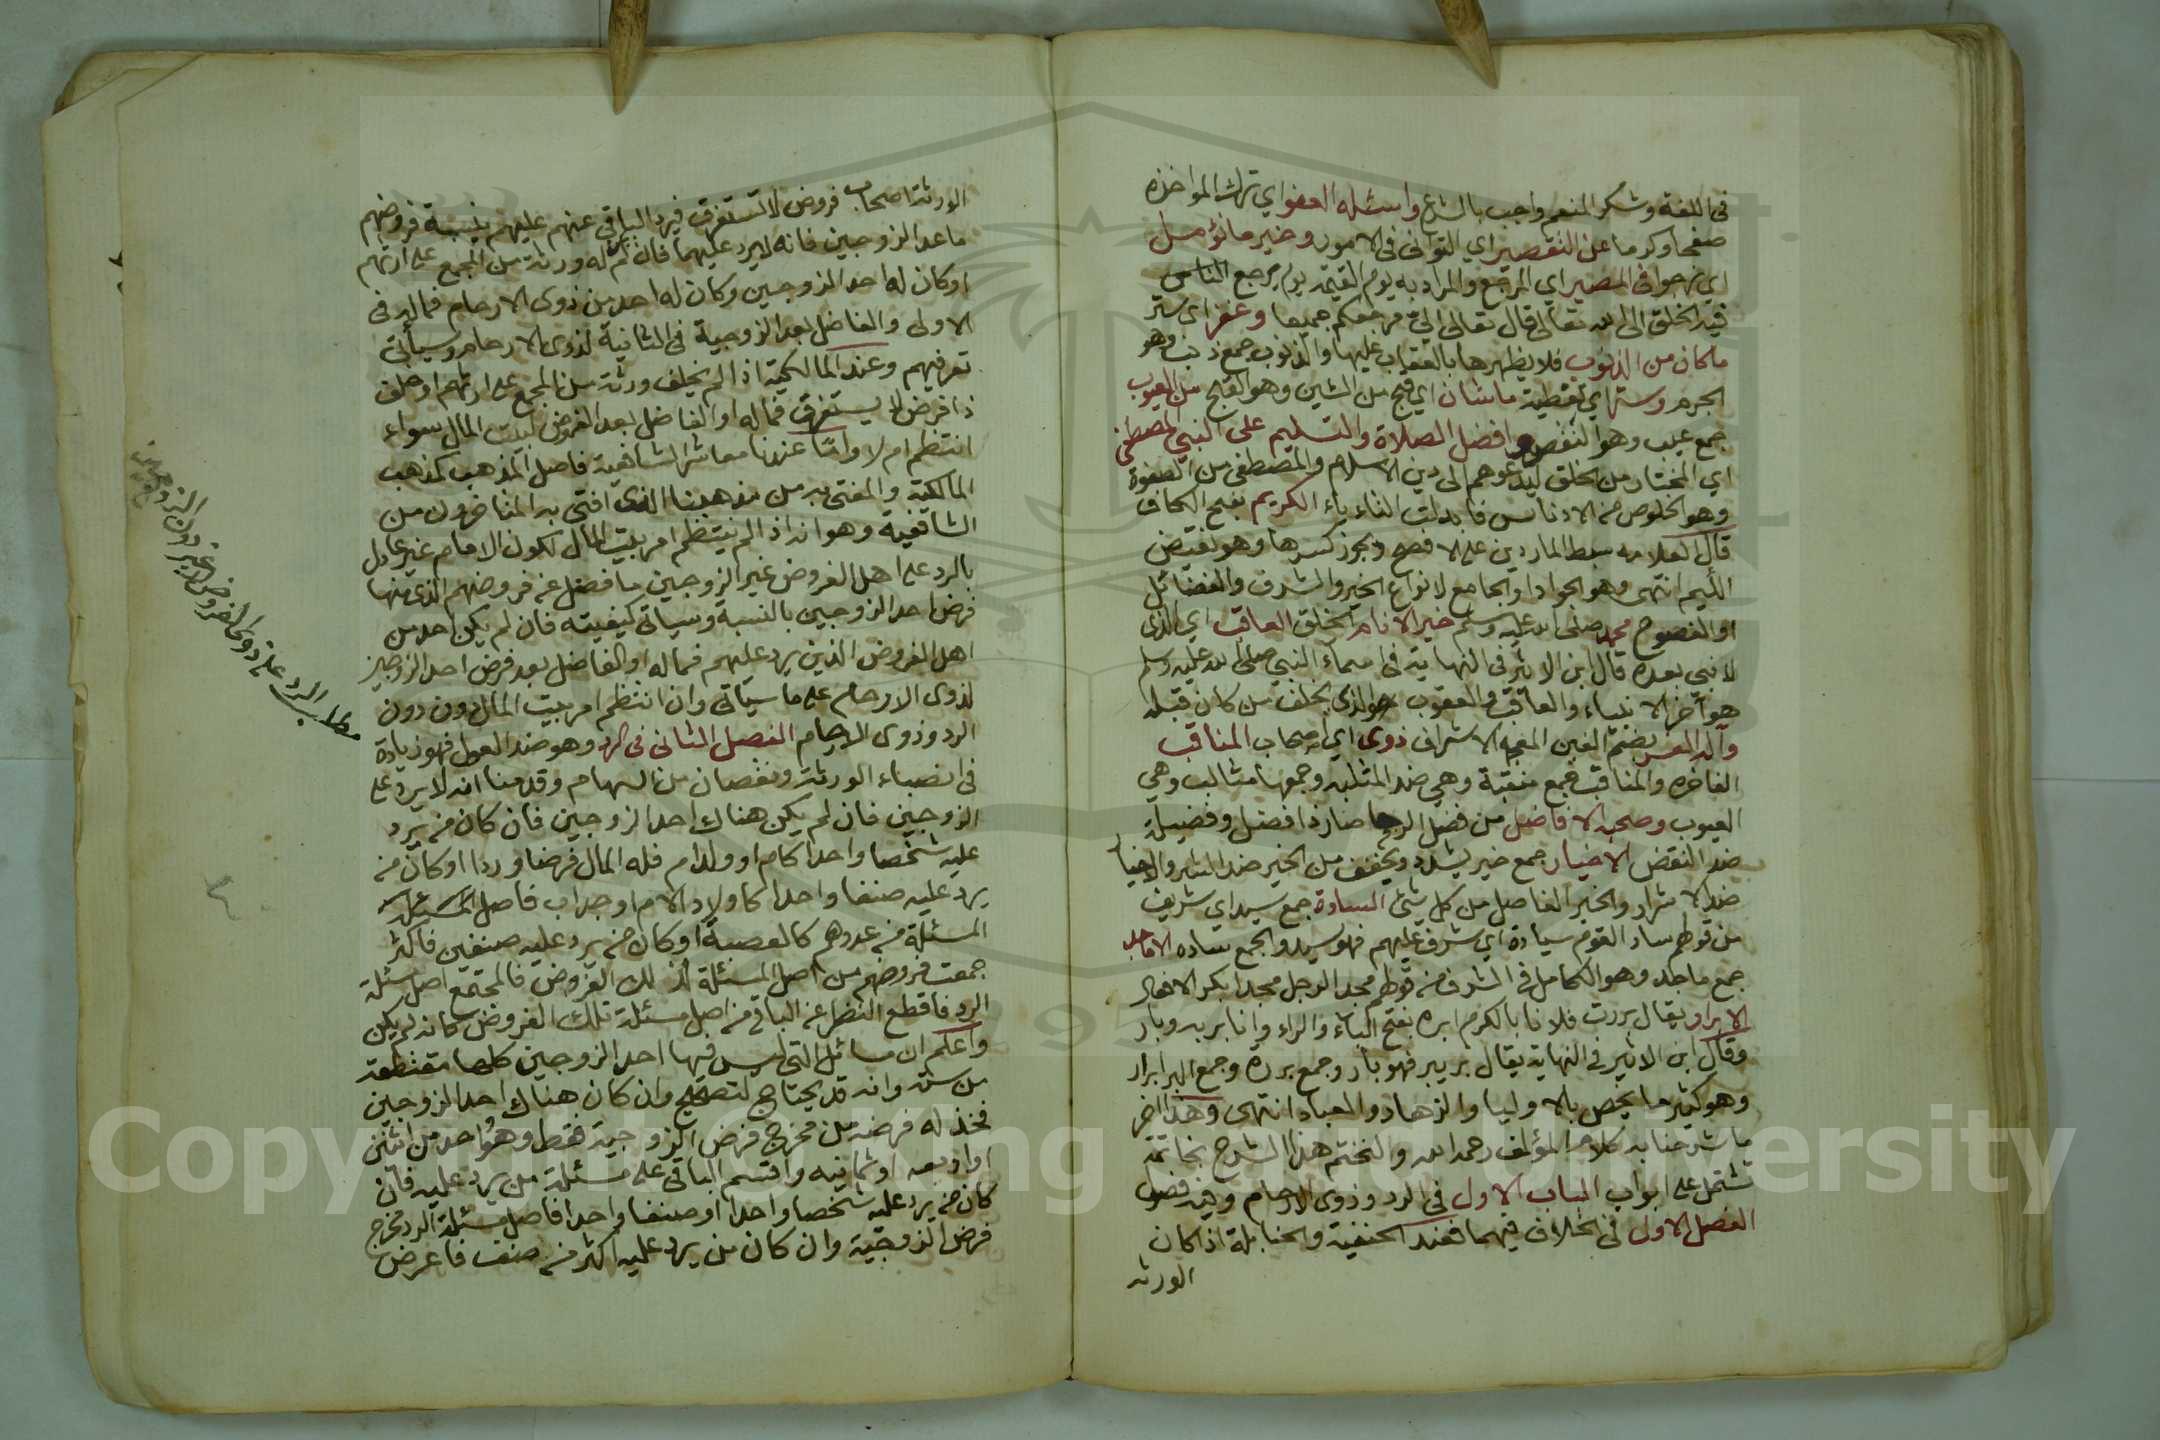 في اللغة وشكر المنعم واجب بالشرع واسئله العفو اي ترك المواخذه
صفحا وكرما عن التقصير اي التواني في الامور وخير ما نؤمل
اي نرجوا في المصير اي المرجع والمراد به يوم القيمة يوم يرجع الناس
فيه الخلق الى الله تعالى قال تعالى الي مرجعكم جميعا وغفر اي ستر
ما كان من الذنوب فلا يظهرها بالعقاب عليها والذنوب جمع ذنب وهو
الجرم وستر اي تغطية ما شان اي قبح من الشين وهو القبح من العيوب
جمع عيب وهو النقص وافضل الصلاة والتسليم على النبي المصطفى
اي المختار من الخلق ليدعوهم الى دين الاسلام والمصطفى من الصفوة
وهو الخلوص من الادناس فابدلت التاء ياء الكريم بفتح الكاف
قال العلامه سبط المارديني على الافصح ويجوز كسرها وهو نقيض
اللئيم انتهى وهو الجواد او الجامع لانواع الخير والشرف والفضائل
او الصفوح محمد صلى الله عليه وسلم خير الانام الخلق العاقب اي الذي
لا نبي بعده قال ابن الاثير في النهاية في اسماء النبي صلى الله عليه وسلم
هو آخر الانبياء والعاقب والعقوب هو الذي يخلف من كان قبله
وآله الغر بضم الغين المعجمة الاشراف ذوى اي اصحاب المناقب
الفاخره والمناقب جمع منقبة وهي ضد المثلبه وجمعها مثالب وهي
العيوب وصحبه الافاضل من فضل الرجل صار ذا فضل وفضيلة
ضد النقص الاخيار جمع خير يشدد ويخفف من الخير ضد الشر والاخيار
ضد الاشرار والخير الفاضل من كل شئ السادة جمع سيد اي شريف
من قولهم ساد القوم سيادة اي شرف عليهم فهو سيد والجمع ساده الاماجد
جمع ماجد وهو الكامل في الشرف من قولهم مجد الرجل مجدا بكرم الافعال
الابرار يقال بررت فلانا بالكرم ابره بفتح الباء والراء وانا بر به وبار
وقال ابن الاثير في النهاية يقال بر يبر فهو بار وجمع بررة وجمع البر ابرار
وهو كثيرا ما يخص بالاوليا والزهاد والعباد انتهى وهذا اخر
ما شرحنا به كلام المؤلف رحمه الله ولنختم هذا الشرح بخاتمة
تشتمل على ابواب الباب الاول في الرد وذوى الارحام وفيه فصول
الفصل الاول في الخلاف فيهما فعند الحنفية والحنابلة اذا كان
الورثه
الورثة اصحاب فروض لا تستغرق فيرد الباقي عنهم عليهم بنسبة فروضهم
ما عدا الزوجين فانه لا يرد عليهما فان لم يكن له ورثة من المجمع على ارثهم
او كان له احد الزوجين وكان له احد من ذوى الارحام فماله في
الاولى والفاضل بعد الزوجية في الثانية لذوى الارحام وسيأتي
تعريفهم وعند المالكية اذا لم يخلف ورثة من المجمع على ارثهم او خلف
ذا فرض لا يستغرق فماله او الفاضل بعد الفروض لبيت المال سواء
انتظم ام لا واما عندنا معاشر الشافعية فاصل المذهب كمذهب
المالكية والمفتى به من مذهبنا الذى افتى به المتاخرون من
الشافعية وهو انه اذا لم ينتظم امر بيت المال لكون الامام غير عادل
بالرد على اهل الفروض غير الزوجين ما فضل عن فروضهم الذي منها
فرض احد الزوجين بالنسبة وسياتي كيفيته فان لم يكن احد من
اهل الفروض الذين يرد عليهم فماله او الفاضل بعد فرض احد الزوجين
لذوى الارحام على ما سياتى وان انتظم امر بيت المال دون دون
الرد وذوى الارحام الفصل الثانى في الرد وهو ضد العول فهو زيادة
في انصباء الورثة ونقصان من السهام وقدمنا انه لا يرد على
الزوجين فان لم يكن هناك احد الزوجين فان كان من يرد
عليه شخصا واحدا كام او ولد ام فله المال فرضا وردا او كان من
يرد عليه صنفا واحدا كاولاد الام او جدات فاصل المسئلة
المسئلة من عددهم كالعصبة او كان من يرد عليه صنفين فاكثر
جمعت فروضهم من اصل المسئلة لتلك الفروض فالمجتمع اصل مسئلة
الرد فاقطع النظر عن الباقي من اصل مسئلة تلك الفروض كانه لم يكن
واعلم ان مسائل التي ليس فيها احد الزوجين كلها مقتطعة
من ستة وانه قد يحتاج لتصحيح وان كان هناك احد الزوجين
فخذ له فرضه من مخرج فرض الزوجية فقط وهو واحد من اثنين
او اربعه او ثمانيه واقسم الباقي على مسئلة من يرد عليه فان
كان من يرد عليه شخصا واحدا او صنفا واحدا فاصل مسئلة الرد مخرج
فرض الزوجية وان كان من يرد عليه اكثر من صنف فاعرض
مطلب الرد على ذوى الفروض غير الزوجين